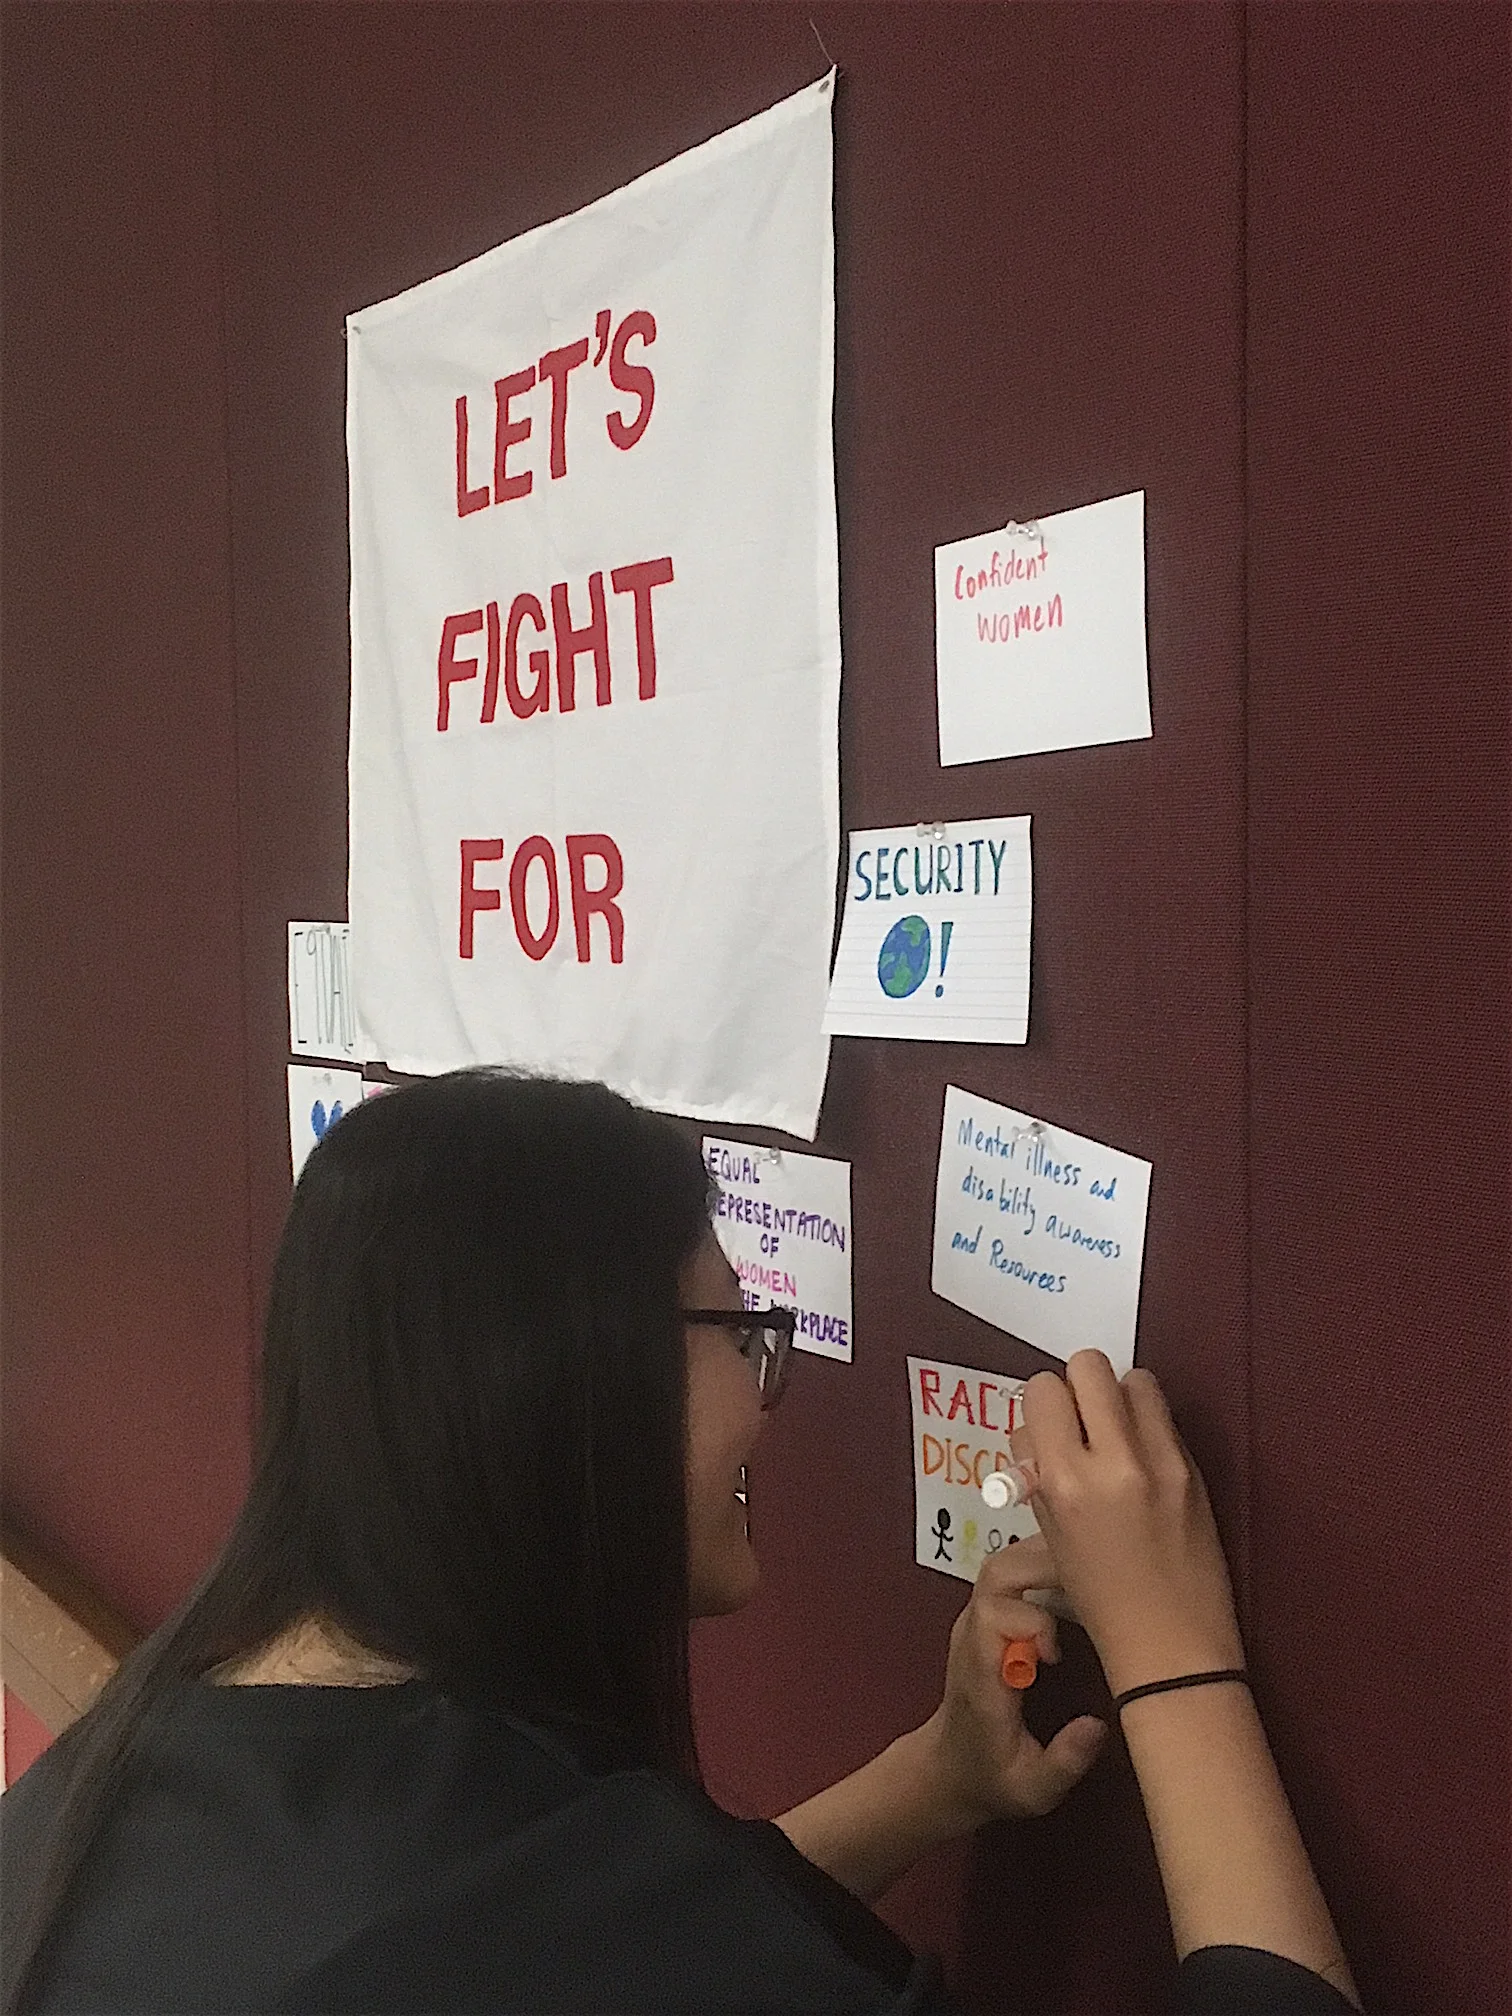 LET'S
FIGHT
FOR
Confident
Women
SECURITY
!
EQUAL
REPRESENTATION
OF
WOMEN
THE WORKPLACE
Mental illness and
disability awareness
and Resources